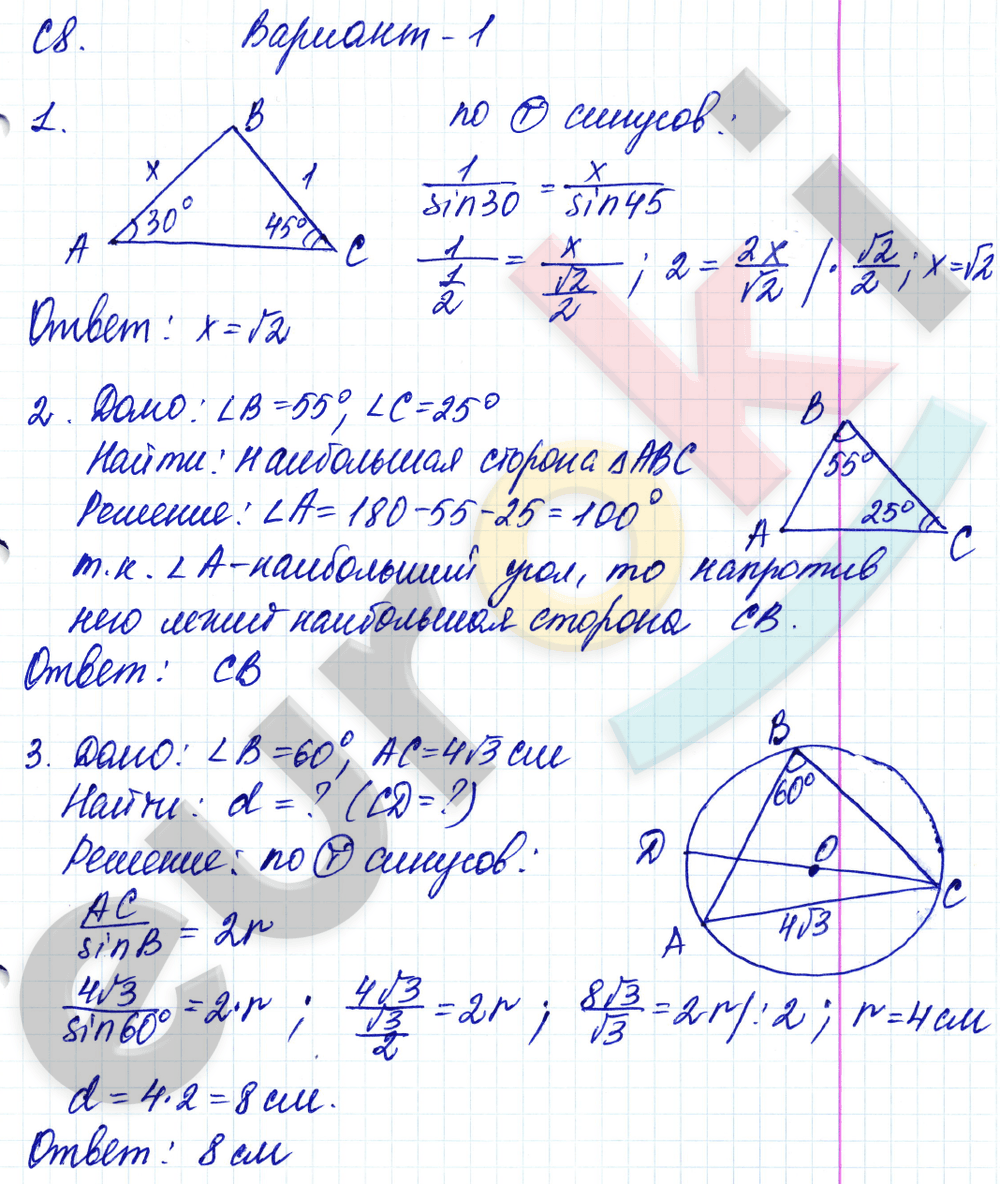 С8. Вариант - 1
1. B
x 1
30° 45°
A C
по Ⓣ синусов:
1/sin30 = x/sin45
1/(1/2) = x/(√2/2) ; 2 = 2x/√2 /· √2/2 ; x=√2
Ответ: x = √2
2. Дано: ∠B = 55°, ∠C = 25°
Найти: наибольшая сторона ΔABC
Решение: ∠A = 180 - 55 - 25 = 100°
т.к. ∠A - наибольший угол, то напротив
него лежит наибольшая сторона CB.
Ответ: CB
B
55°
25°
A C
3. Дано: ∠B = 60°, AC = 4√3 см
Найти: d = ? (CD = ?)
Решение: по Ⓣ синусов:
AC/sinB = 2r
4√3/sin60° = 2·r ; 4√3/(√3/2) = 2r ; 8√3/√3 = 2r/:2 ; r = 4 см
d = 4·2 = 8 см.
Ответ: 8 см
B
60°
D O
C
4√3
A
euroki